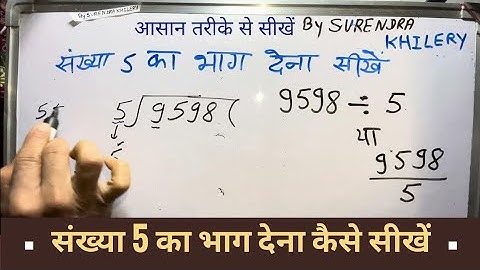 By SURENDRA KHILERY
आसान तरीके से सीखें By SURENDRA
KHILERY
संख्या 5 का भाग देना सीखें
5 5)9598( 9598 ÷ 5
या
9598
5
संख्या 5 का भाग देना कैसे सीखें